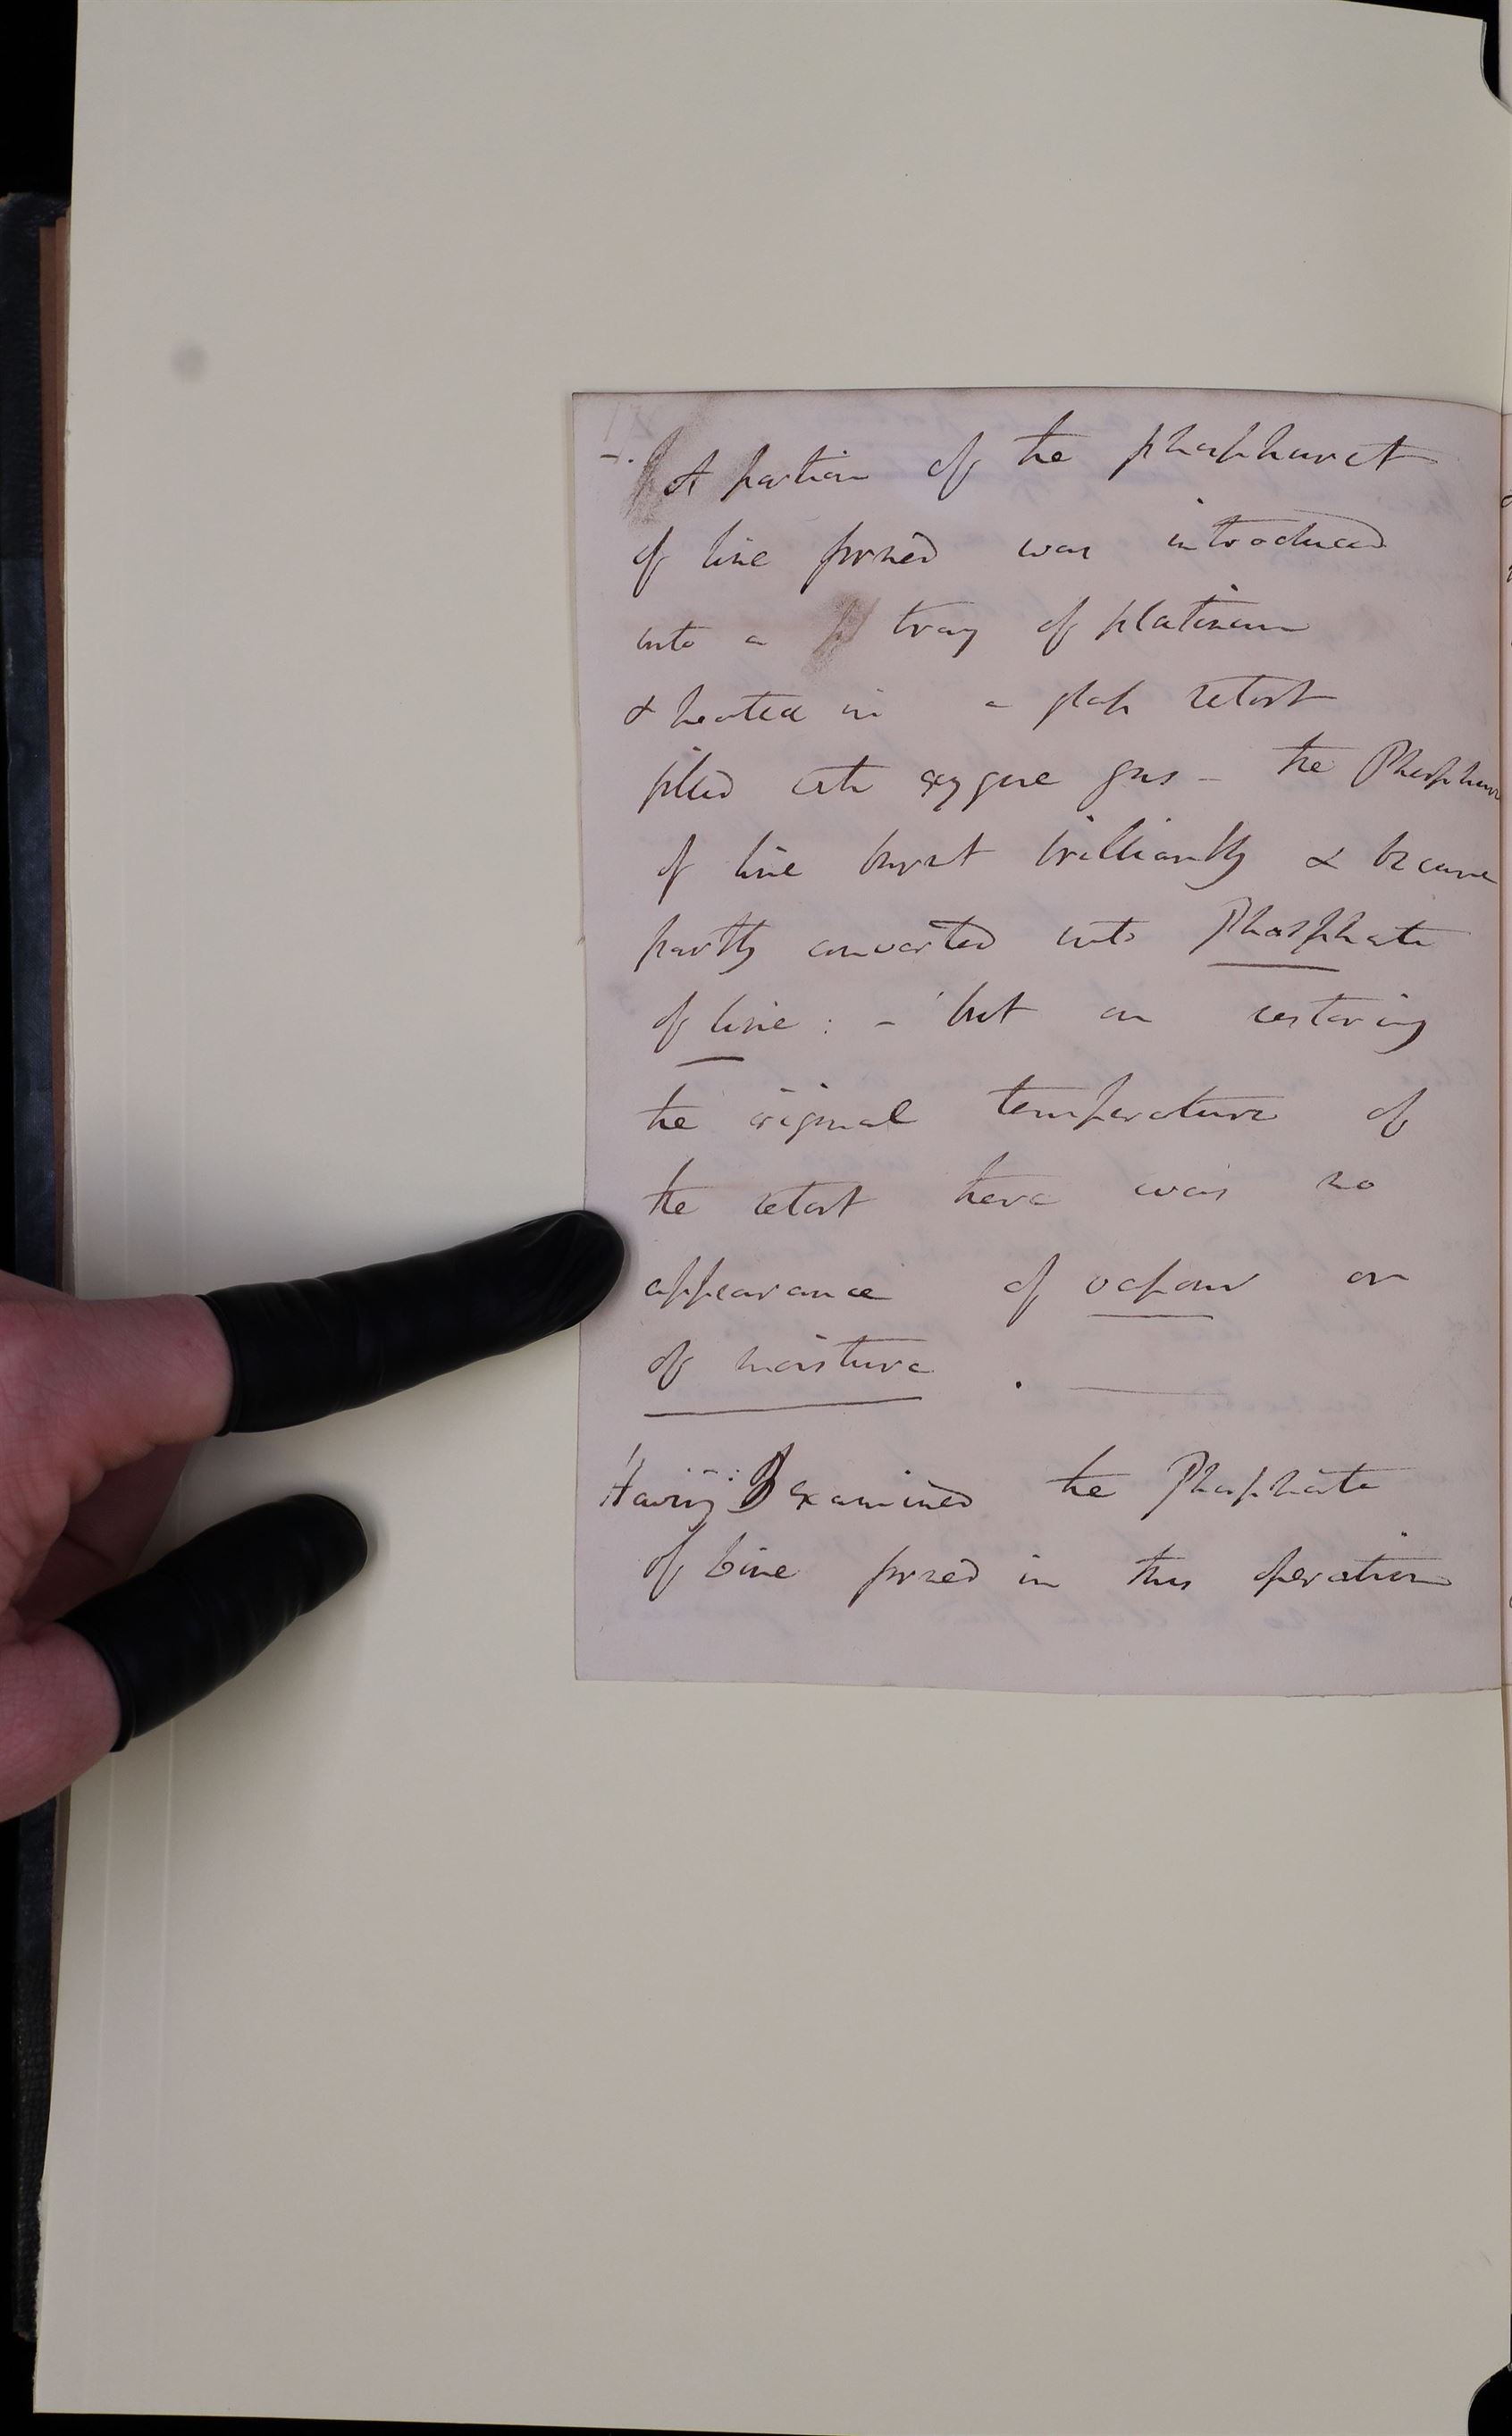 A portion of the phosphuret
of lime formed was introduced
into a tray of platinum
& heated in a glass retort
filled with oxygene gas - the Phosphuret
of lime burnt brilliantly & became
partly converted into Phosphate
of lime : - but on restoring
the original temperature of
the retort there was no
appearance of vapour or
of moisture .
Having examined the Phosphate
of Lime formed in this operation